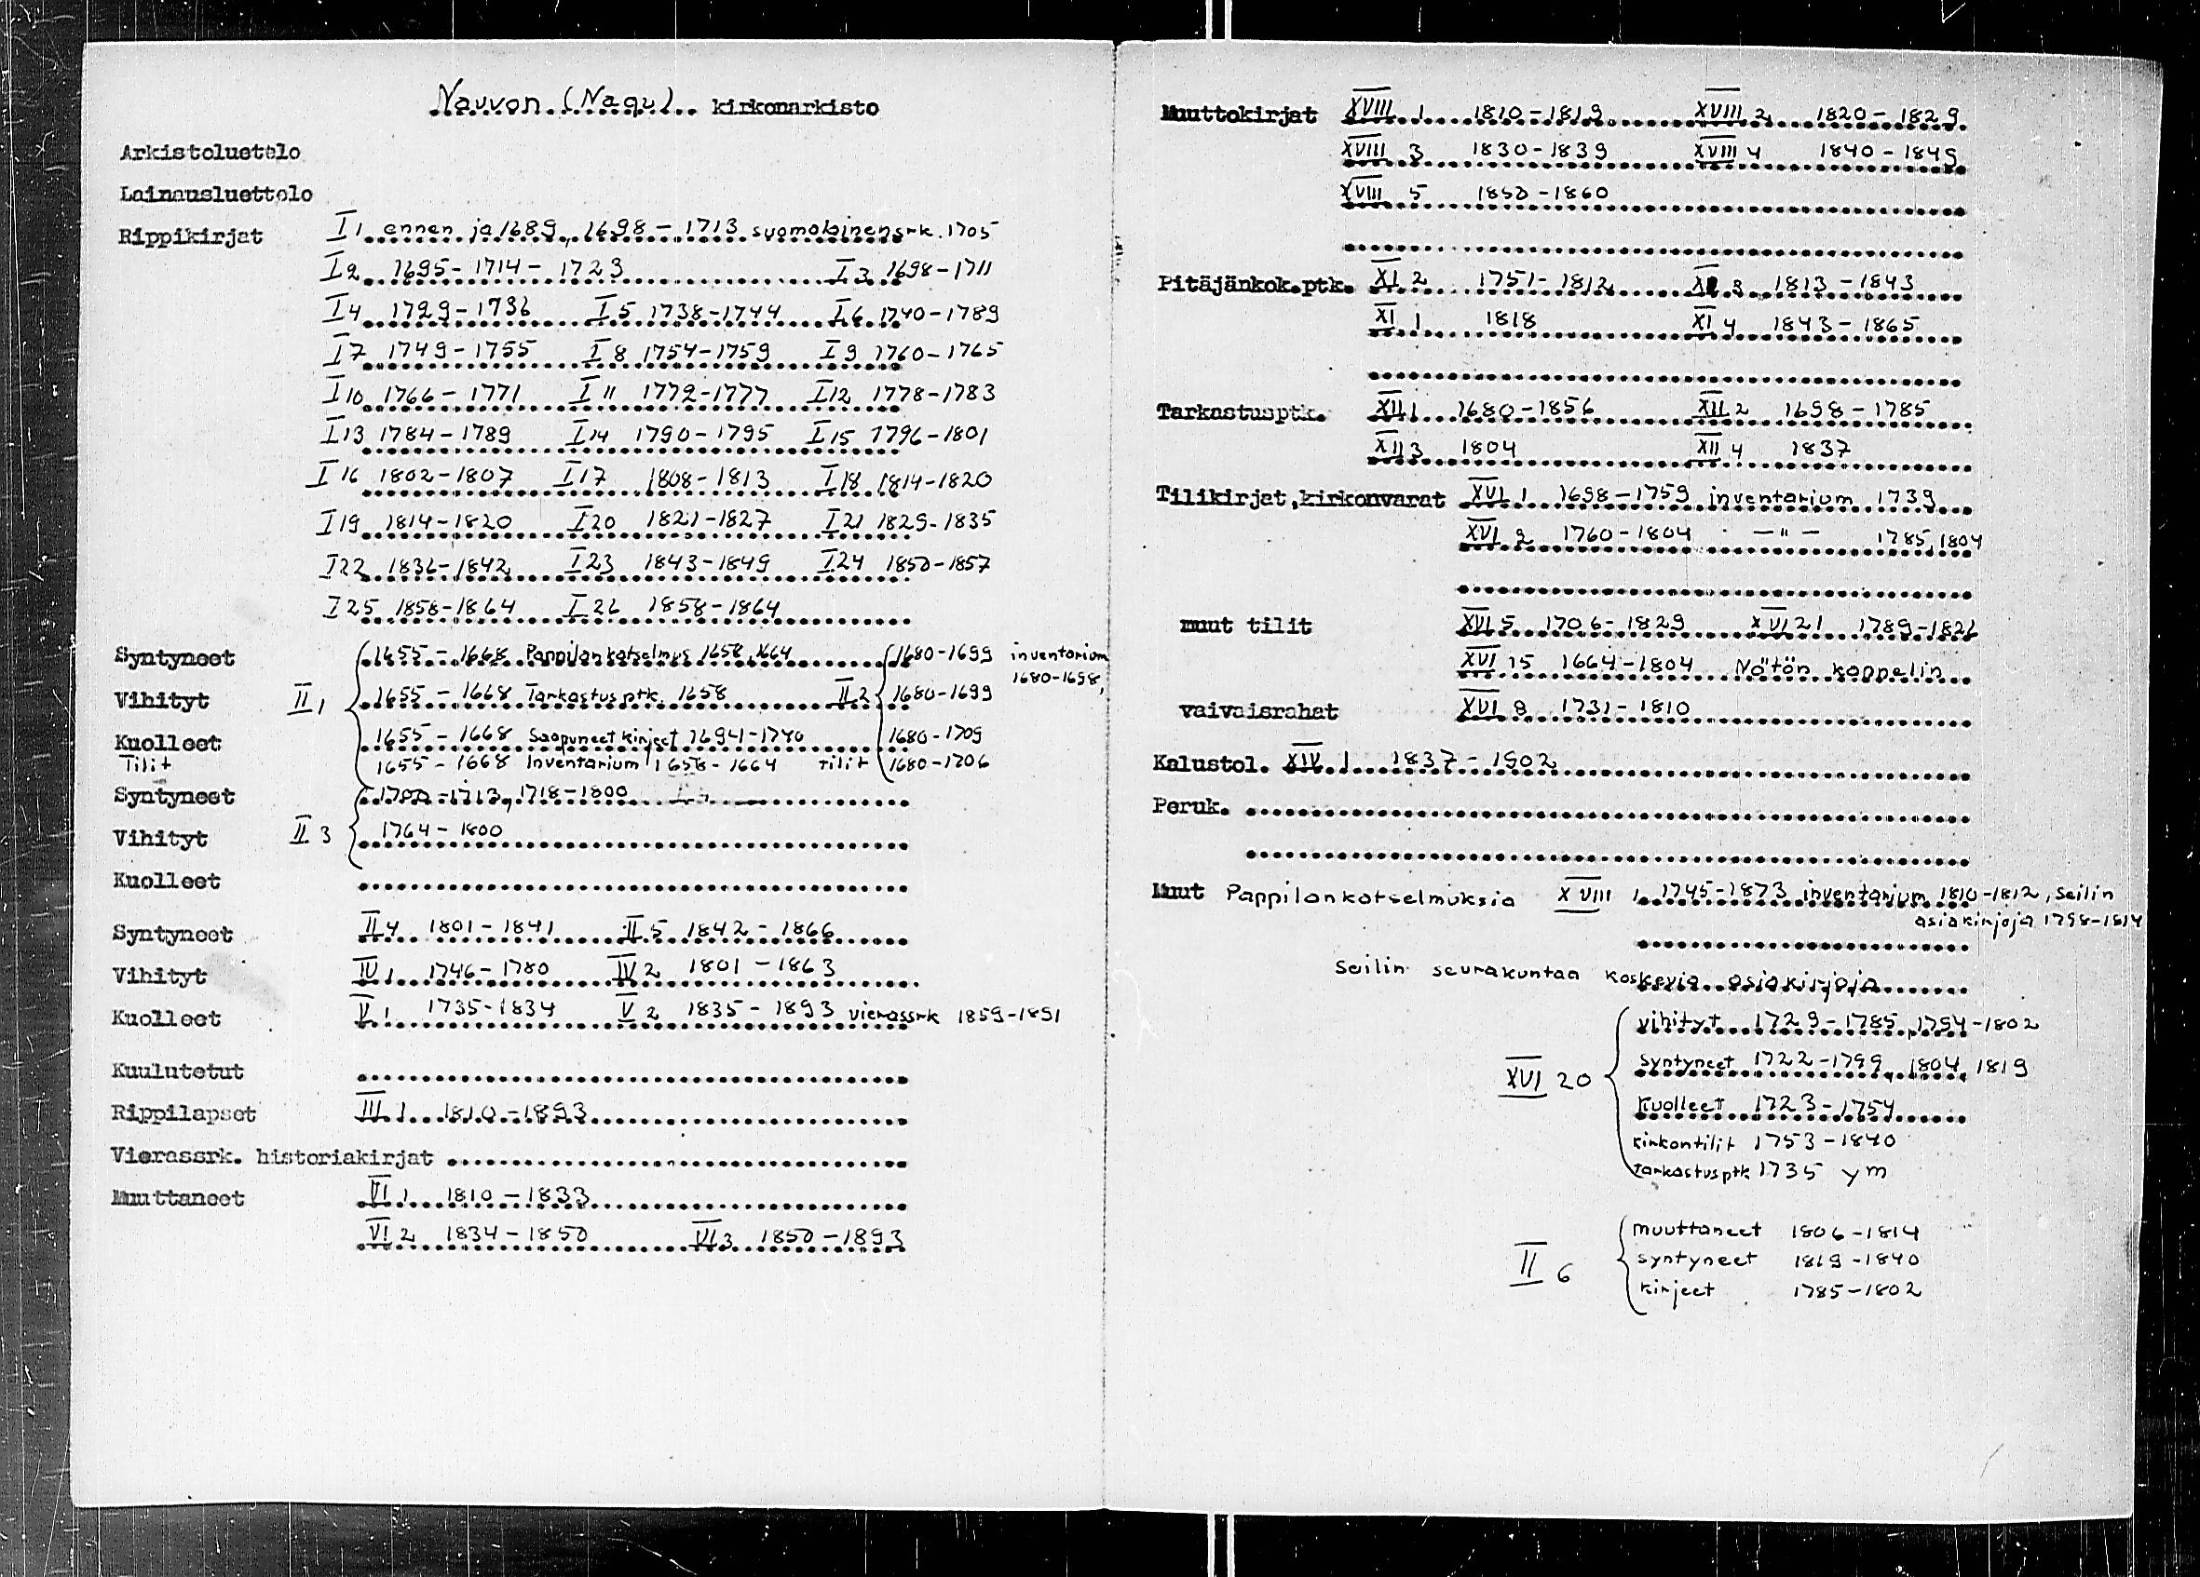 Nauvon (Nagu) kirkonarkisto
Arkistoluettelo
Lainausluettelo
Rippikirjat I 1 ennen ja 1689, 1698-1713 suomalainensrk. 1705
I 2 1695-1714-1723 I 3 1698-1711
I 4 1729-1736 I 5 1738-1744 I 6 1740-1789
I 7 1749-1755 I 8 1754-1759 I 9 1760-1765
I 10 1766-1771 I 11 1772-1777 I 12 1778-1783
I 13 1784-1789 I 14 1790-1795 I 15 1796-1801
I 16 1802-1807 I 17 1808-1813 I 18 1814-1820
I 19 1814-1820 I 20 1821-1827 I 21 1829-1835
I 22 1836-1842 I 23 1843-1849 I 24 1850-1857
I 25 1858-1864 I 26 1858-1864
Syntyneet 1655-1668 Pappilankatselmus 1658, 1664 1680-1699 inventarium 1680-1698,
Vihityt II 1 1655-1668 Tarkastusptk. 1658 II 2 1680-1699
Kuolleet 1655-1668 Saapuneet kirjeet 1694-1740 1680-1709
Tilit 1655-1668 Inventarium 1658-1664 Tilit 1680-1706
Syntyneet 1700-1713, 1718-1800
Vihityt II 3 1764-1800
Kuolleet
Syntyneet II 4 1801-1841 II 5 1842-1866
Vihityt IV 1 1746-1780 IV 2 1801-1863
Kuolleet V 1 1735-1834 V 2 1835-1893 vierassrk 1859-1891
Kuulutetut
Rippilapset III 1 1810-1893
Vierassrk. historiakirjat
Muuttaneet VI 1 1810-1833
VI 2 1834-1850 VI 3 1850-1893
Muuttokirjat XVIII 1 1810-1819 XVIII 2 1820-1829
XVIII 3 1830-1839 XVIII 4 1840-1849
XVIII 5 1850-1860
Pitäjänkok.ptk. XI 2 1751-1812 XI 3 1813-1843
XI 1 1818 XI 4 1843-1865
Tarkastusptk. XII 1 1680-1856 XII 2 1698-1785
XII 3 1804 XII 4 1837
Tilikirjat, kirkonvarat XVI 1 1698-1759 inventarium 1739
XVI 2 1760-1804 -"- 1785, 1804
muut tilit XVI 5 1706-1829 XVI 21 1789-1821
XVI 15 1664-1804 Nötön kappelin
vaivaisrahat XVI 8 1731-1810
Kalustol. XIV 1 1837-1902
Peruk.
Muut Pappilankatselmuksia XVIII 1 1745-1873 inventarium 1810-1812, Seilin
asiakirjoja 1798-1814
Seilin seurakuntaa koskevia asiakirjoja
vihityt 1729-1785, 1794-1802
XVI 20 syntyneet 1722-1799, 1804, 1819
kuolleet 1723-1754
kirkontilit 1753-1840
tarkastusptk 1735 ym
muuttaneet 1806-1814
II 6 syntyneet 1819-1840
kirjeet 1785-1802